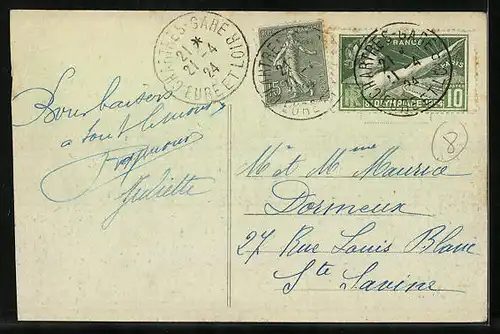 CHARTRES-GARE
EURE ET LOIR
21 *
21-4
24
CHARTRES-GARE
21-4
24
FRANCE
8e OLYMPIADE 1924
10
8
Bons baisers
a tout le monde
Juliette
Mr et Mme Maurice
Dormeux
27 Rue Louis Blanc
Ste Savine